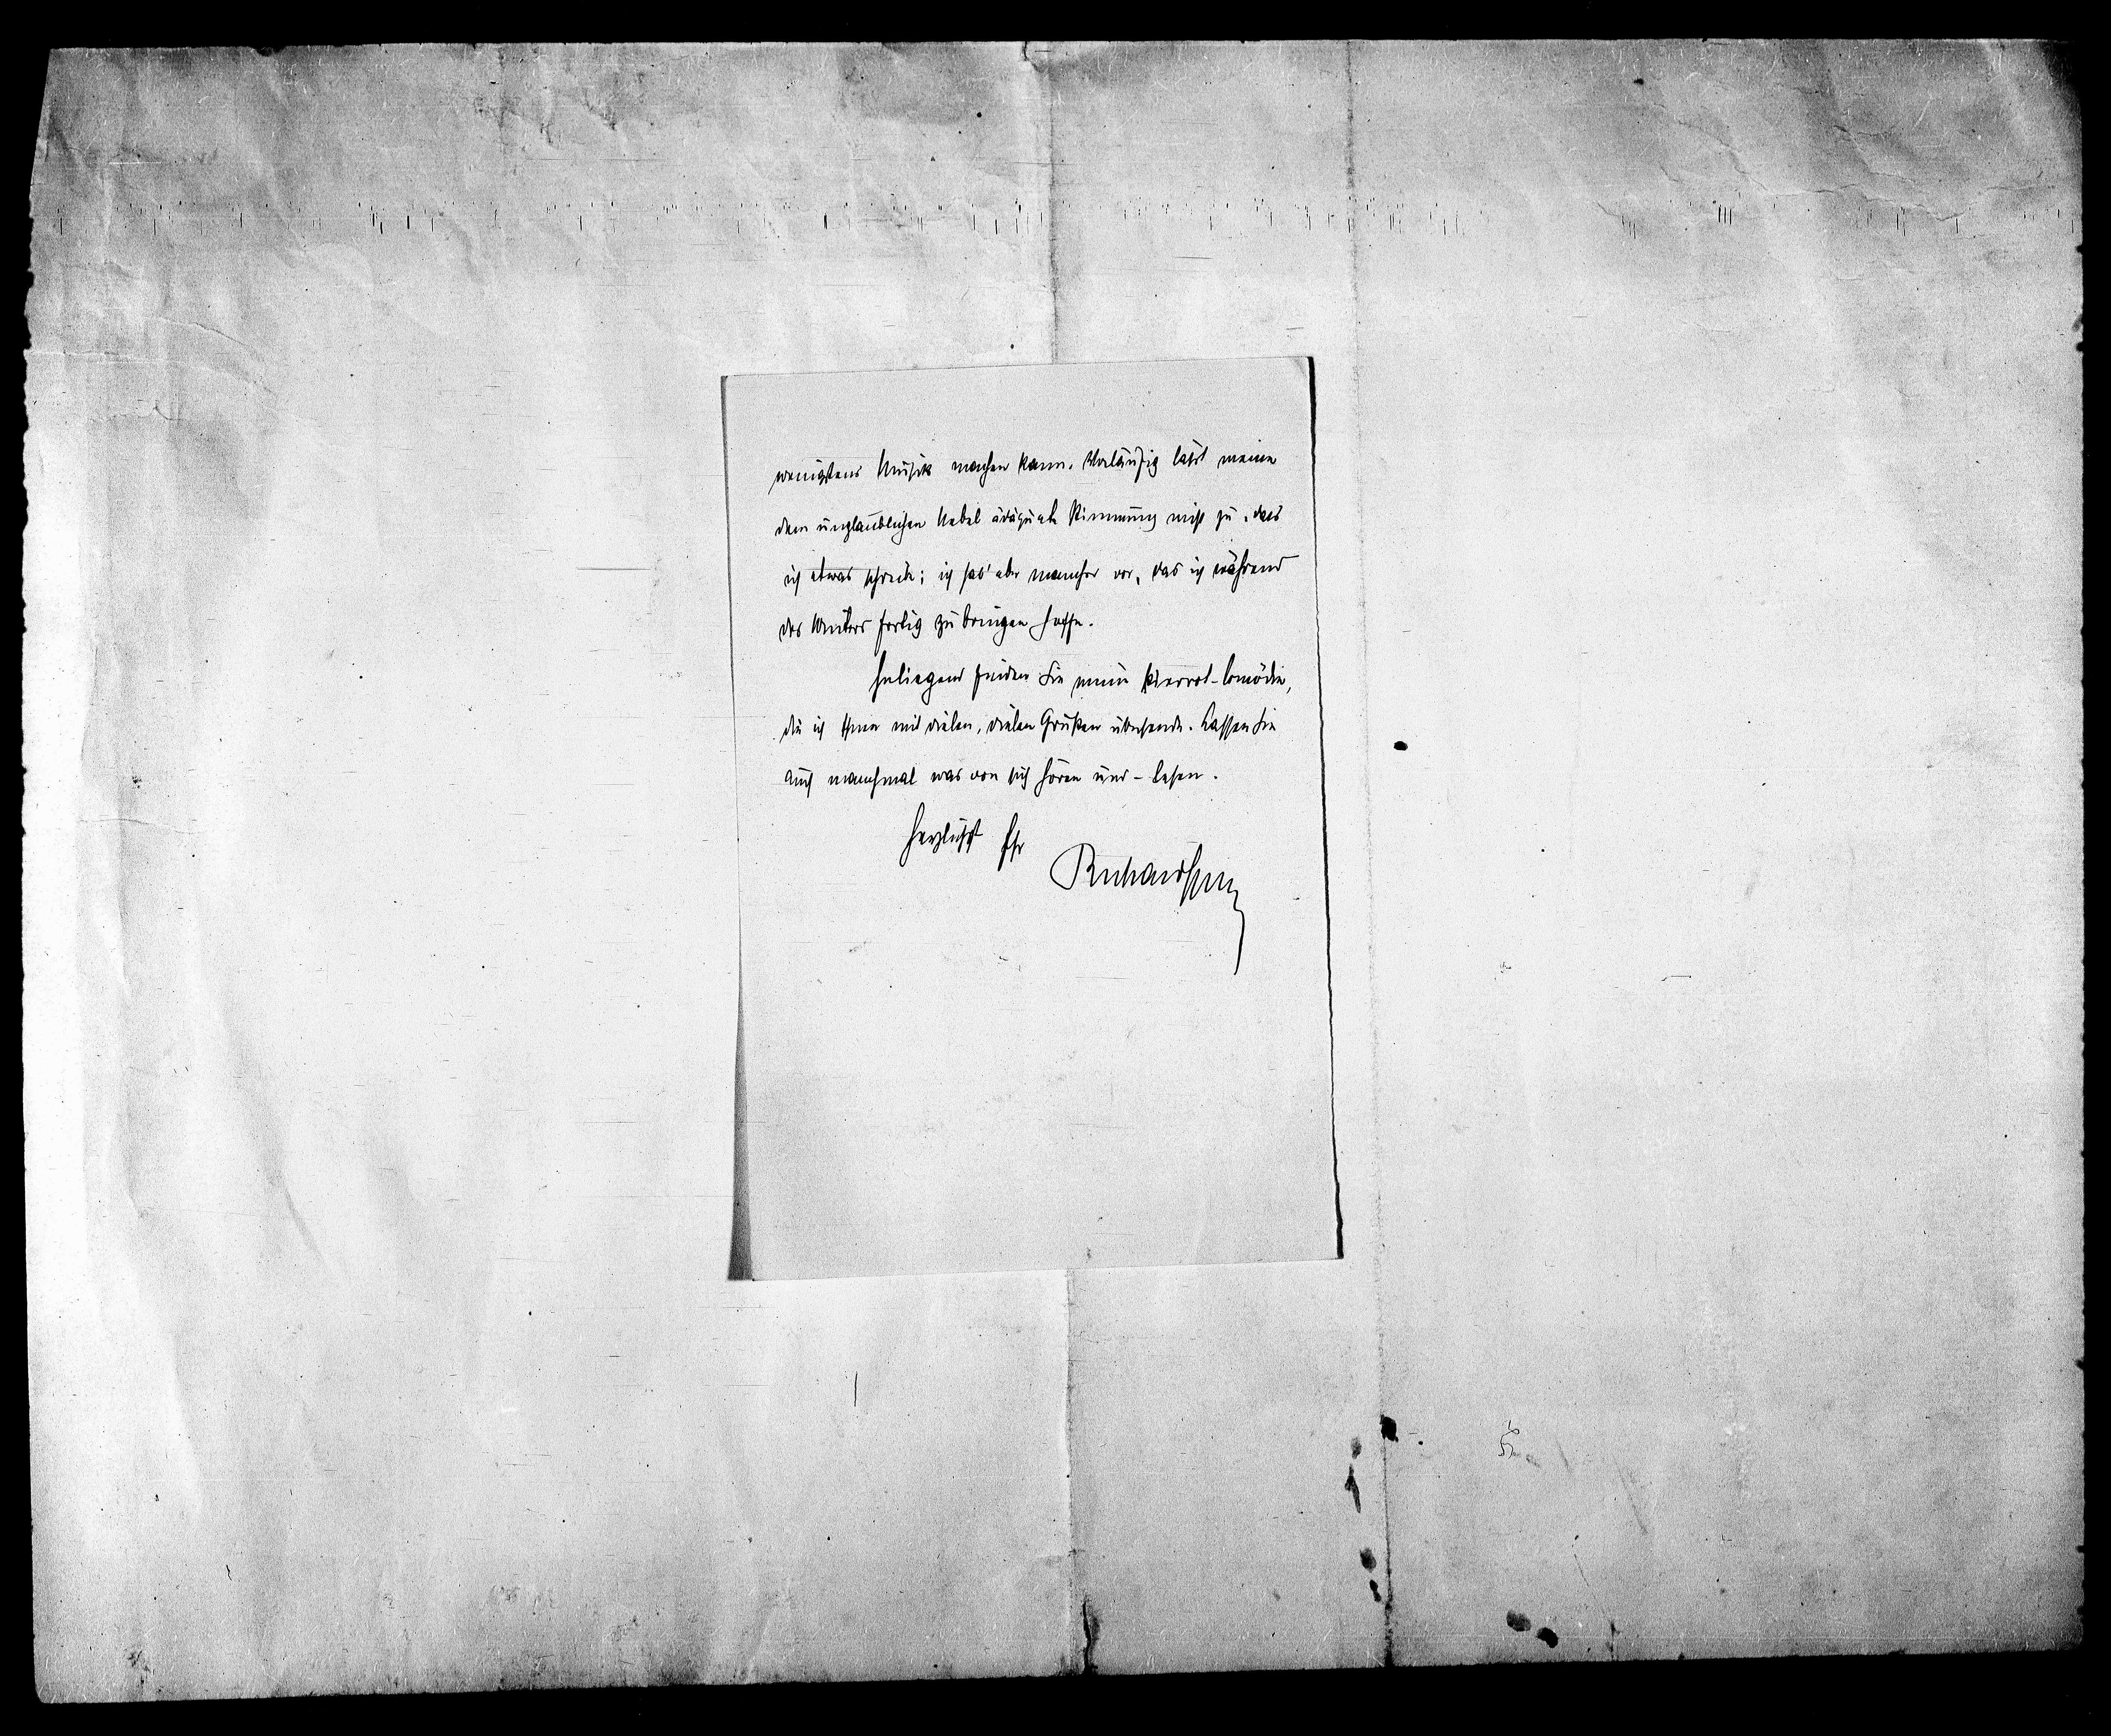 wenigstens Musik machen kann. Vorläufig lässt meine
dem unglaublichen Nebel adäquate Stimmung nicht zu, dass
ich etwas schreibe; ich hab' aber mancher vor, das ich während
des Winters fertig zu bringen hoffe.
Inliegend finden Sie meine Pierrot-Comödie,
die ich Ihnen mit vielen, vielen Grüßen übersende. Lassen Sie
auch manchmal was von sich hören und – lesen.
Herzlichst Ihr